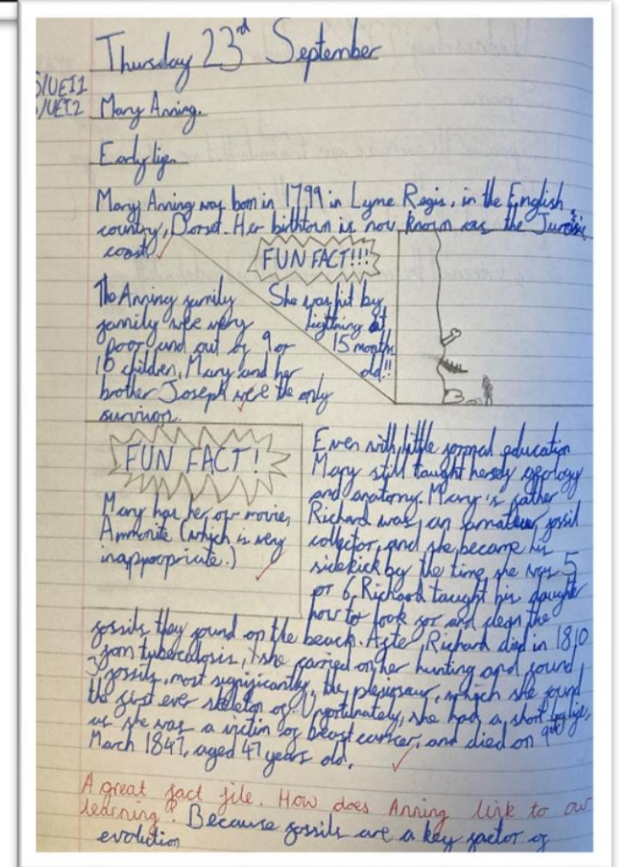 Thursday 23rd September
S/UE11
/UE12
Mary Anning.
Early life.
Mary Anning was born in 1799 in Lyme Regis, in the English
country, Dorset. Her birthtown is now known as the Jurassic
coast.
FUN FACT!!!
She was hit by
lightning at
15 months
old!!
The Anning family
family were very
poor and out of 9 or
10 children, Mary and her
brother Joseph were the only
survivors.
FUN FACT!
Mary has her own movie,
Ammonite (which is very
inappropriate.)
Even with little formal education
Mary still taught herself geology
and anatomy. Mary's father
Richard was an amateur fossil
collector, and she became his
sidekick by the time she was 5
or 6, Richard taught his daughter
how to look for and clean the
fossils they found on the beach. After Richard died in 1810
from tuberculosis, she carried on her hunting and found
3 fossils, most significantly, the plesiosaur, which she found
the first ever skeleton of. Unfortunately, she had a short life,
as she was a victim of breast cancer, and died on 9th
March 1847, aged 47 years old.
A great fact file. How does Anning link to our
learning? Because fossils are a key factor of
evolution